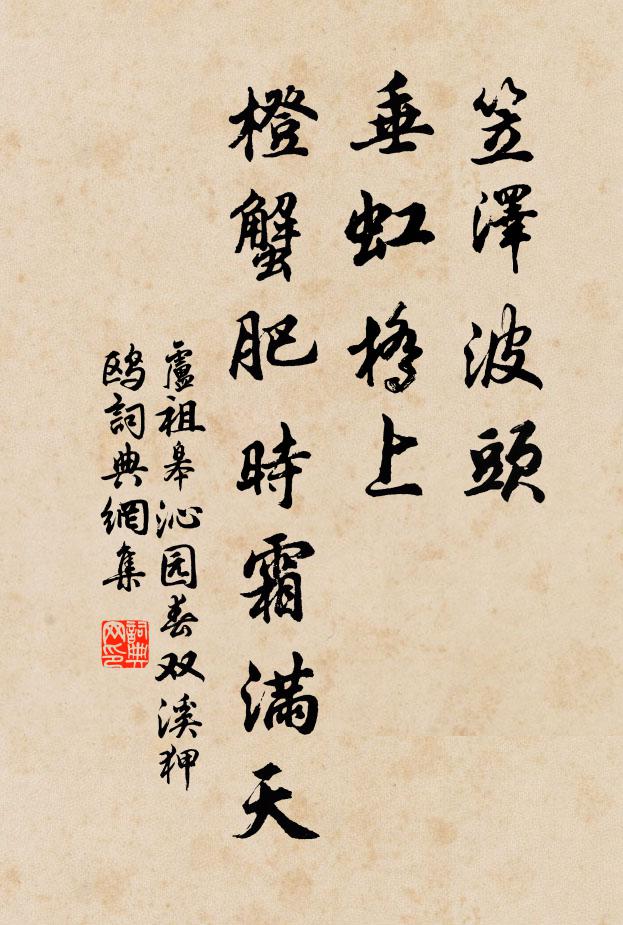 笠澤波頭
垂虹橋上
橙蟹肥時霜滿天
盧祖皋沁园春双溪狎
鸥詞典網集
詞典
网印